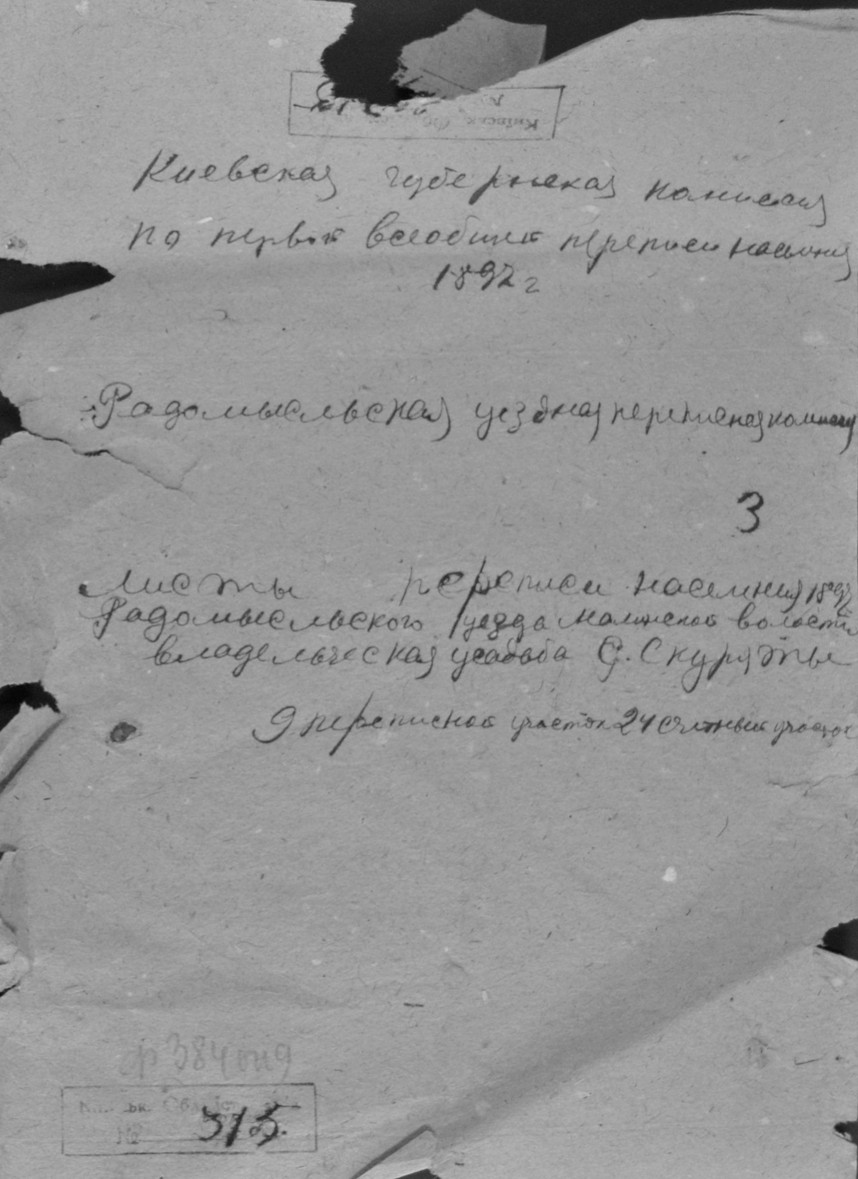 Киевская губернская комиссия
по первой всеобщей переписи населения
1897 г
Радомысльская уездная переписная комиссия
3
Листы переписи населения 1897
Радомысльского уезда Малинской волости
владельческая усадьба С. Скураты
9 переписной участок 24 счетный участок
ф 384 оп 9
№ 315